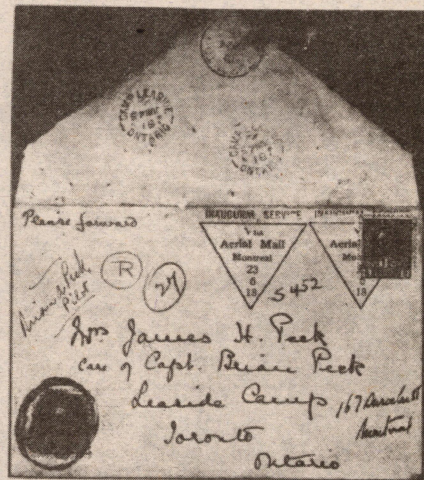 CAMP LEASIDE
ONTARIO
CAMP
ONTARIO
Please forward
INAUGURAL SERVICE
Via
Aerial Mail
Montreal
23
6
18
Via
Aerial
18
Brian Peck
Pilot
R
27
5452
Mrs James H. Peck
care of Capt. Brian Peck
Leaside Camp
Toronto
Ontario
167
Montreal